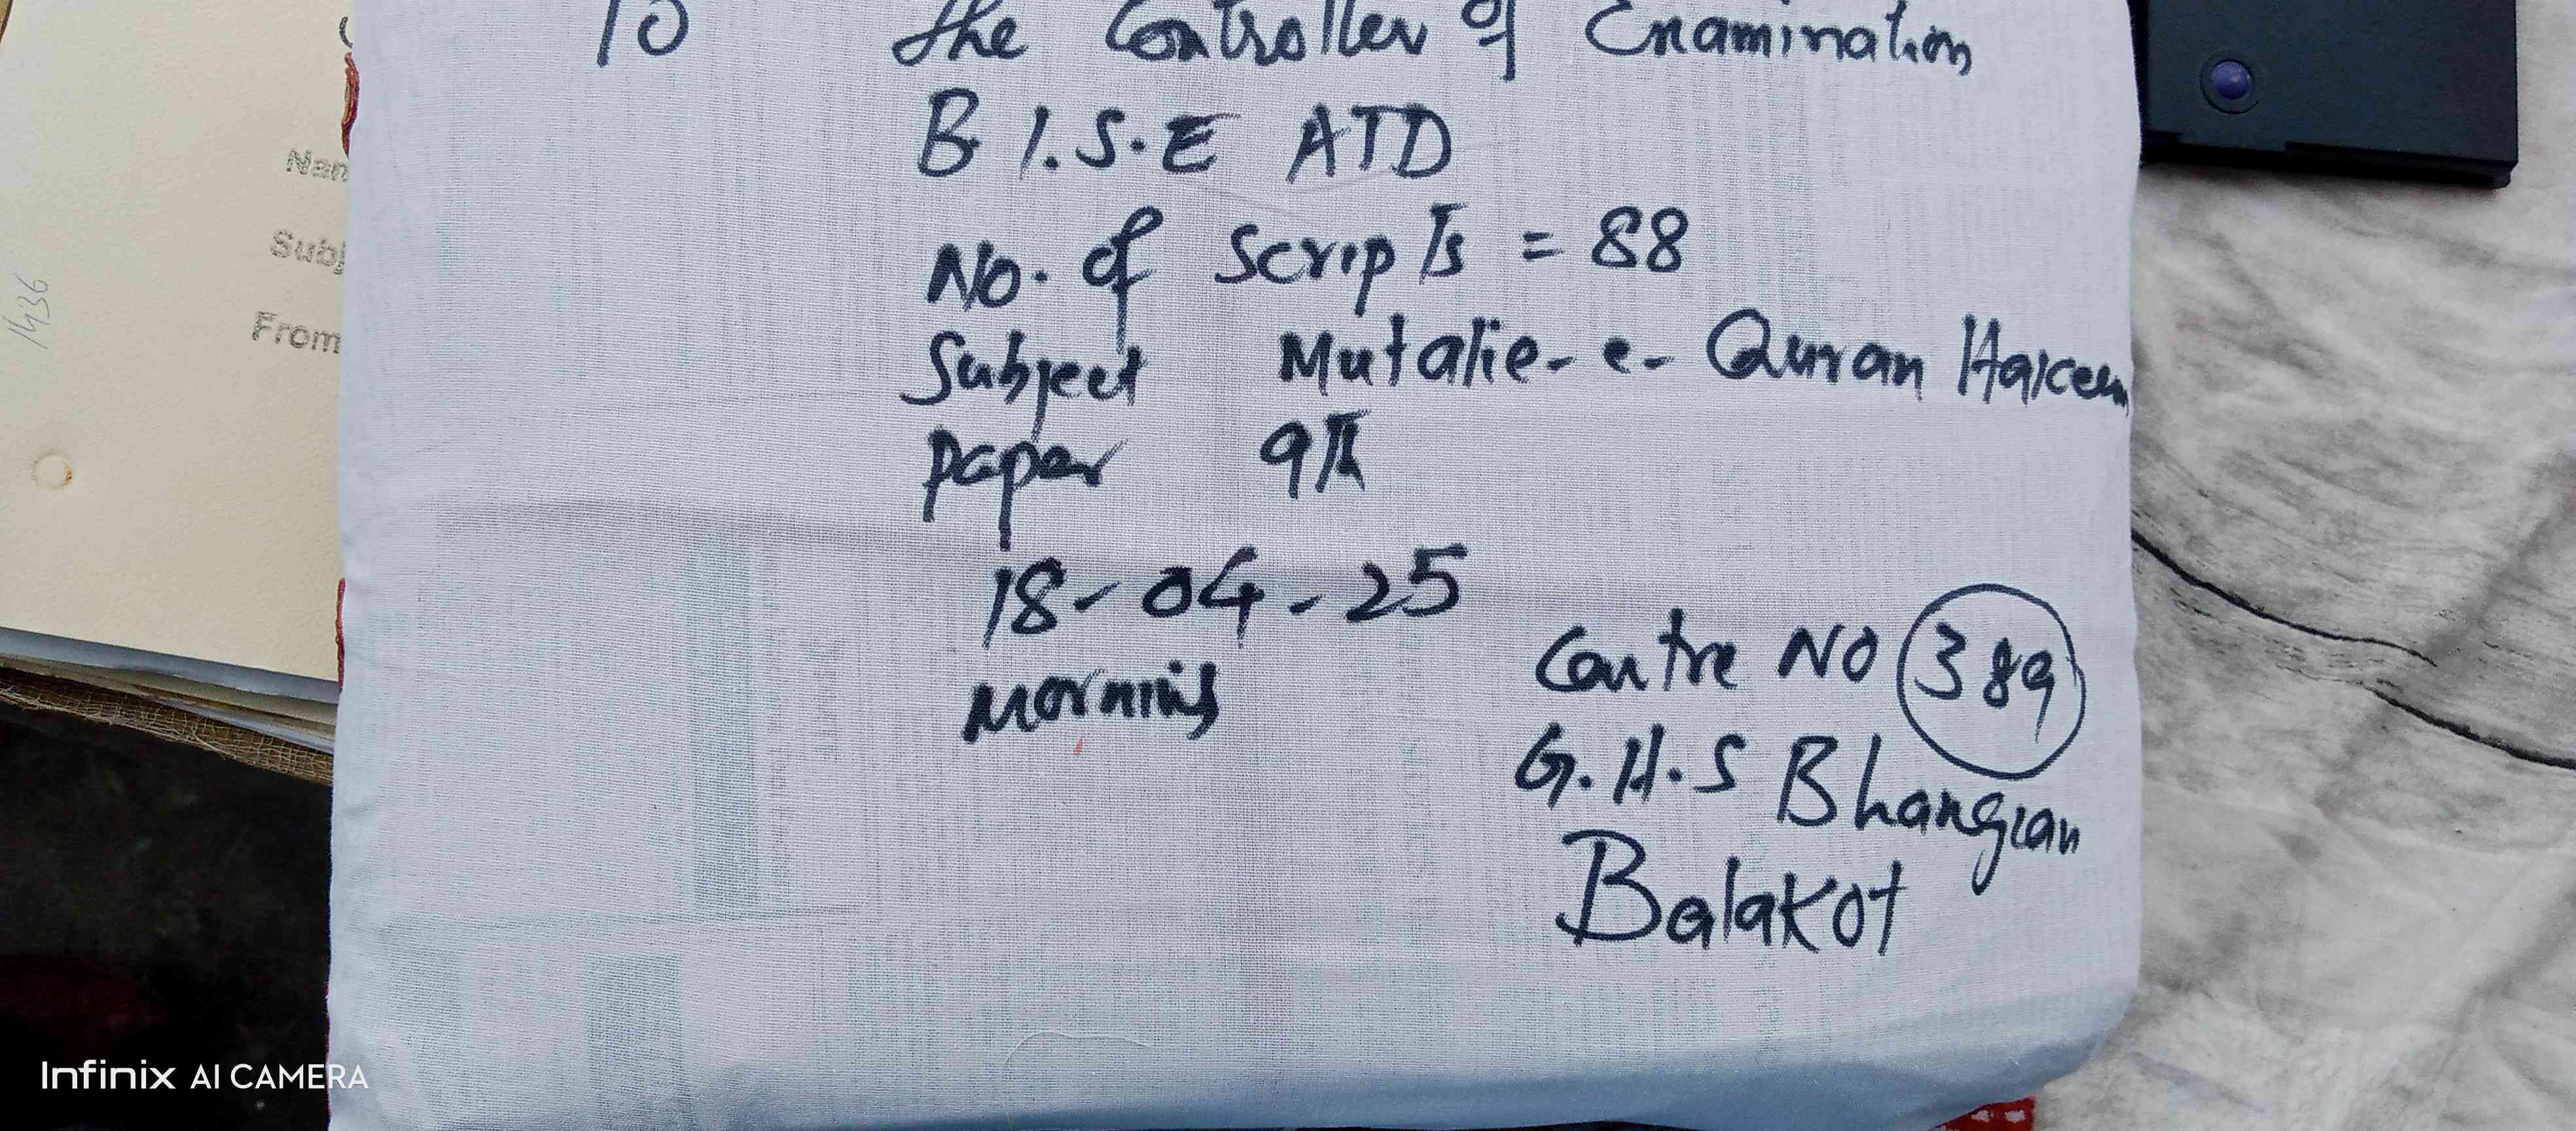 To The Controller of Examination
B I.S.E ATD
No. of Scripts = 88
Subject Mutalie-e-Quran Hakeem
Paper 9th
18-04-25
Morning
Centre NO 389
G.H.S Bhangian
Balakot
Nam
Subj
From
1436
Infinix AI CAMERA